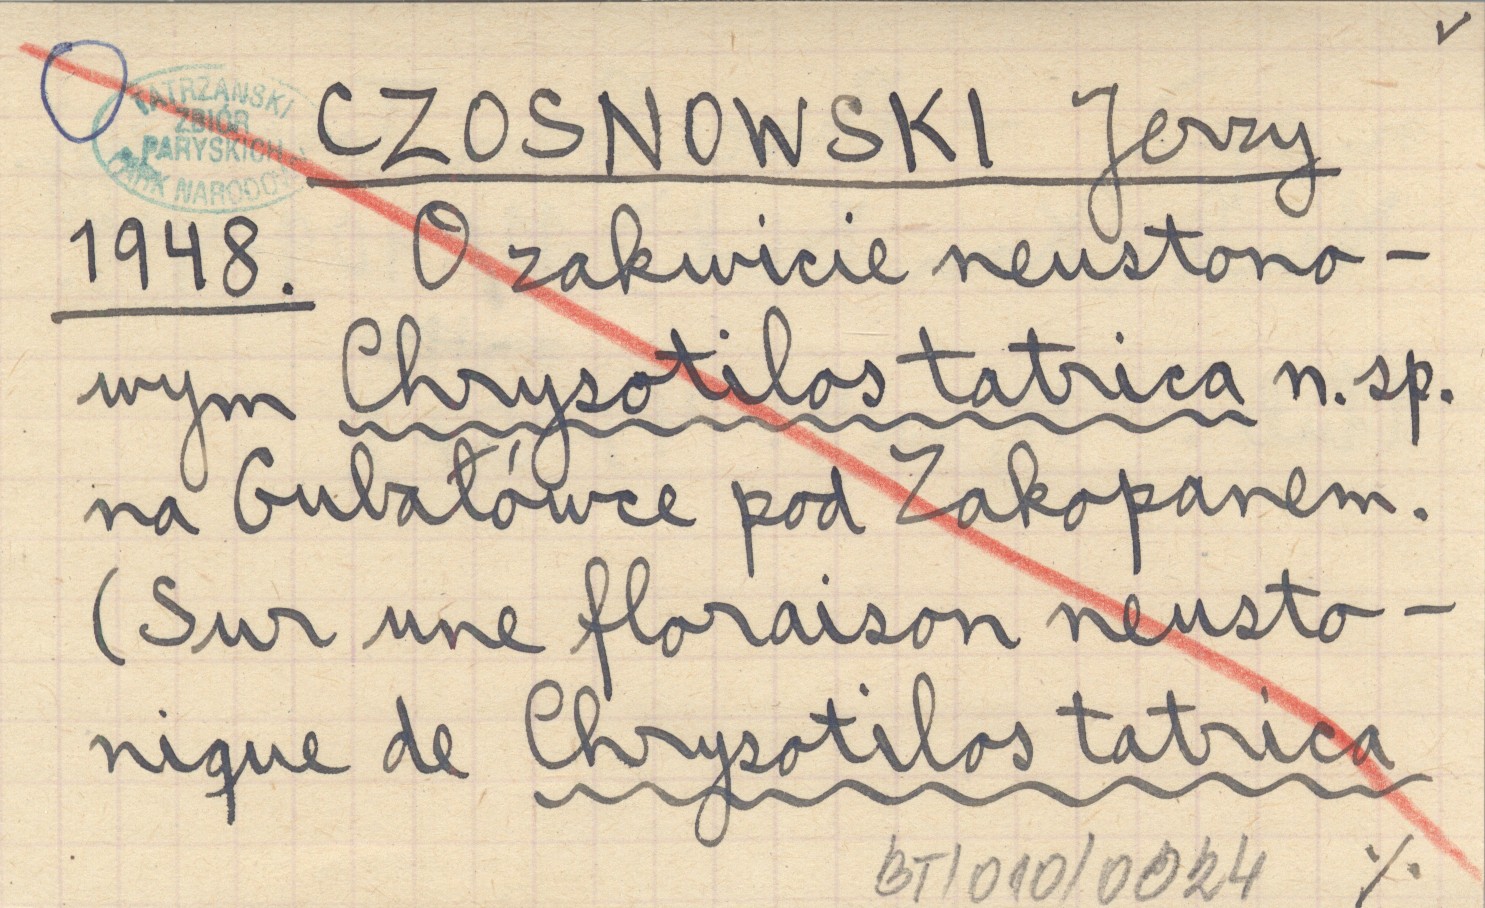 ✓
TATRZAŃSKI
ZBIÓR
PARYSKICH
PARK NARODO
CZOSNOWSKI Jerzy
1948. O zakwicie neustono-
wym Chrysotilos tatrica n. sp.
na Gubałówce pod Zakopanem.
(Sur une floraison neusto-
nique de Chrysotilos tatrica
BT/010/0024 ·/.